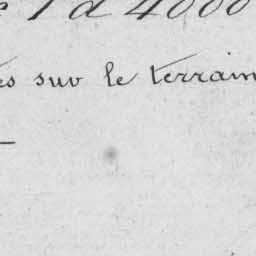 1 à 4000
es sur le terrain